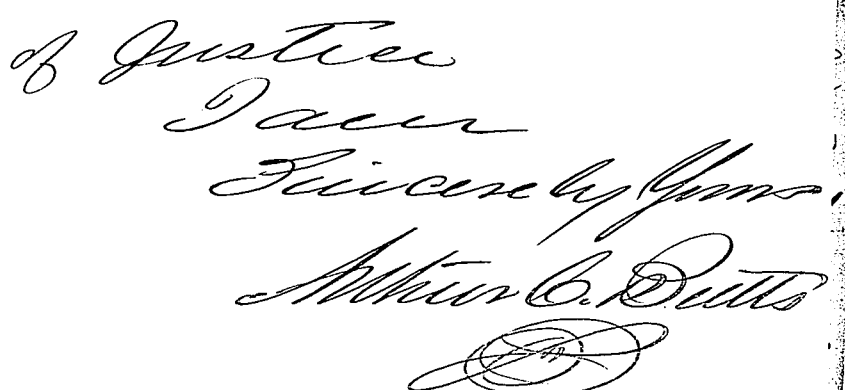 of Justice
I am
Sincerely Yours,
Arthur C. Butts